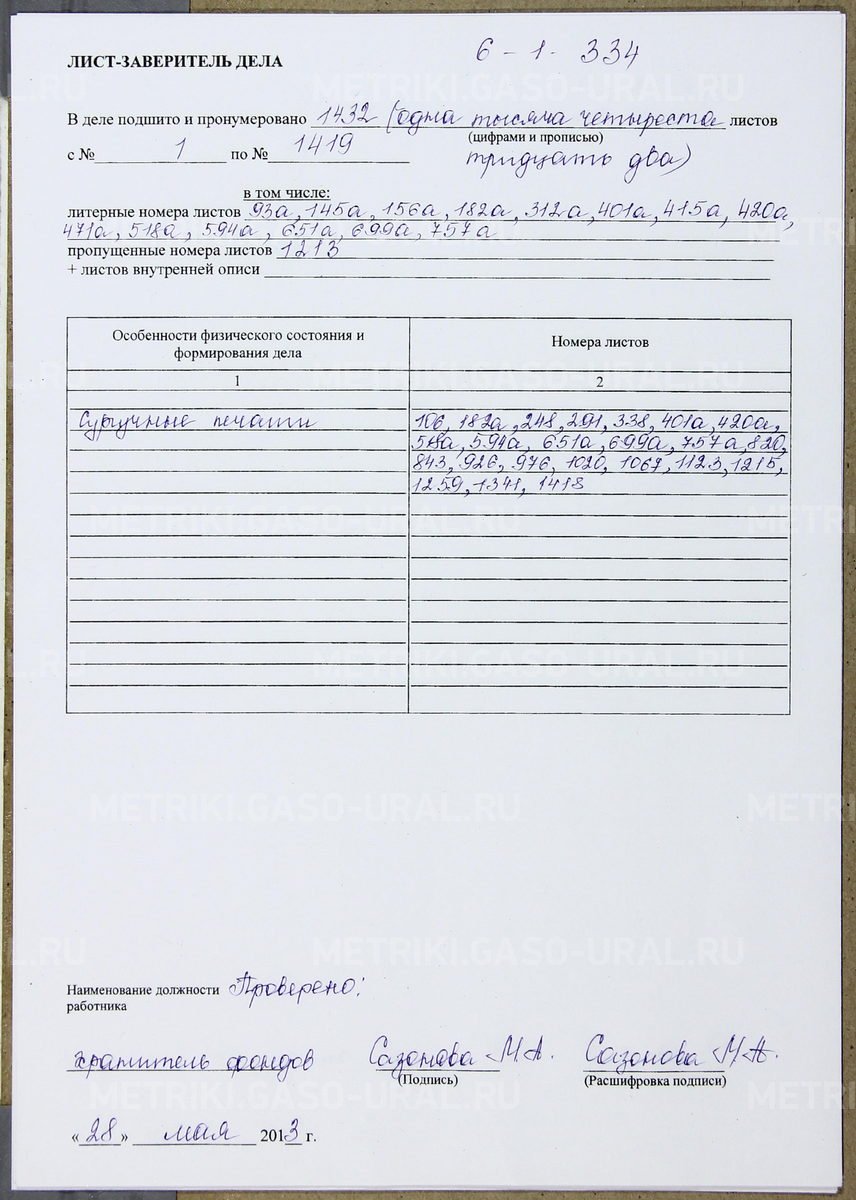 6 - 1 - 334
ЛИСТ-ЗАВЕРИТЕЛЬ ДЕЛА
В деле подшито и пронумеровано 1432 (одна тысяча четыреста листов
(цифрами и прописью)
с № 1 по № 1419 тридцать два)
в том числе:
литерные номера листов 93а, 145а, 156а, 182а, 312а, 401а, 415а, 420а,
471а, 518а, 594а, 651а, 699а, 757а
пропущенные номера листов 1213
+ листов внутренней описи
Особенности физического состояния и
формирования дела
Номера листов
1
2
Сургучные печати
106, 182а, 248, 291, 338, 401а, 420а,
518а, 594а, 651а, 699а, 757а, 820,
843, 926, 976, 1020, 1067, 1123, 1215,
1259, 1341, 1418
Наименование должности Проверено:
работника
хранитель фондов Сазонова М.А. Сазонова М.А.
(Подпись) (Расшифровка подписи)
«28» мая 2013 г.
METRIKI.GASO-URAL.RU